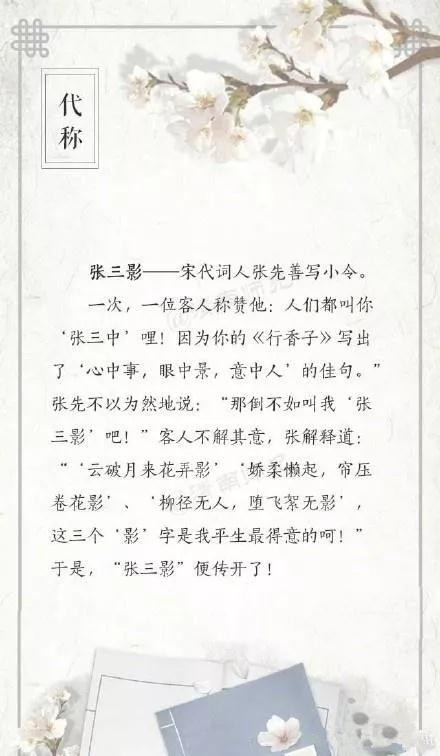 代
称
张三影——宋代词人张先善写小令。
一次，一位客人称赞他：人们都叫你
‘张三中’哩！因为你的《行香子》写出
了‘心中事，眼中景，意中人’的佳句。”
张先不以为然地说：“那倒不如叫我‘张
三影’吧！”客人不解其意，张解释道：
“‘云破月来花弄影’‘娇柔懒起，帘压
卷花影’、‘柳径无人，堕飞絮无影’，
这三个‘影’字是我平生最得意的呵！”
于是，“张三影”便传开了！